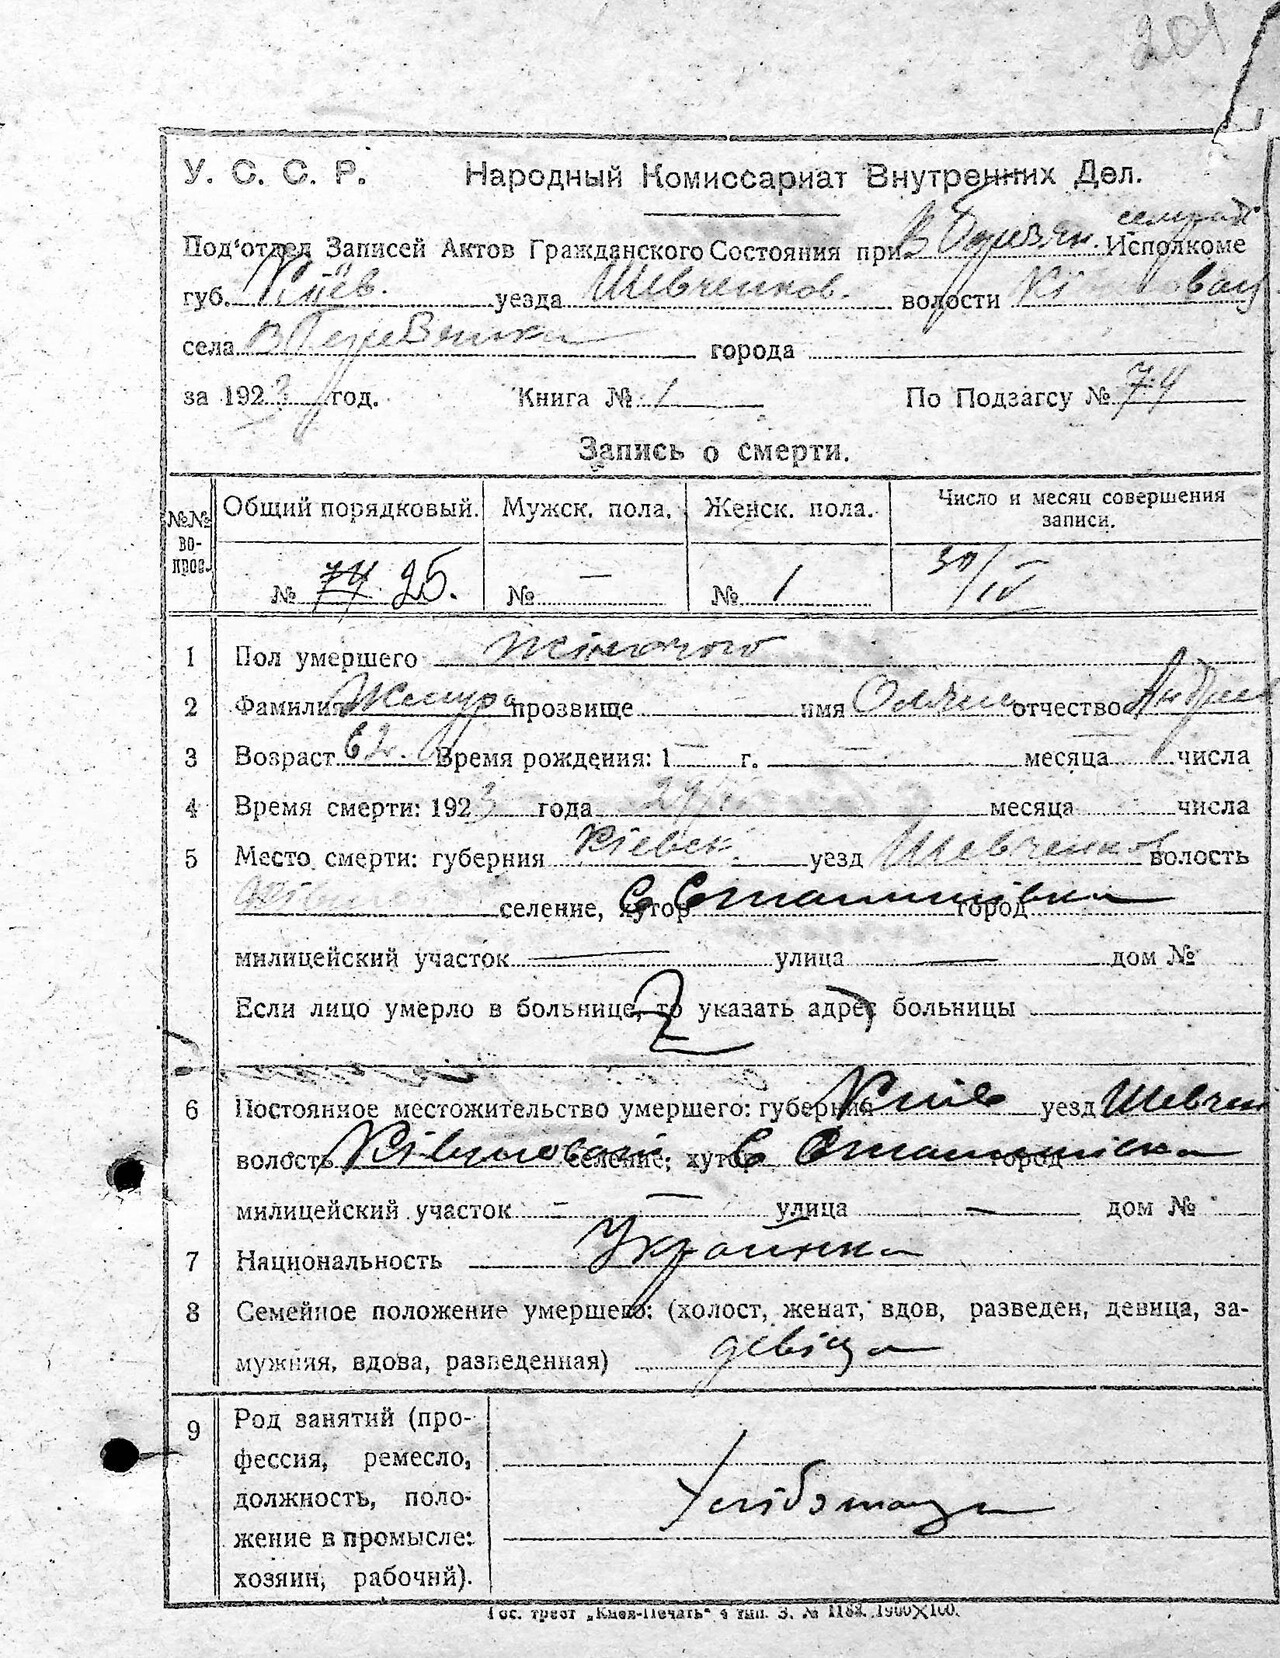 201
У. С. С. Р. Народный Комиссариат Внутренних Дел.
Под'отдел Записей Актов Гражданского Состояния при Исполкоме
губ. Київ. уезда Шевченков. волости
села города
за 1923 год. Книга № 1 По Подзагсу № 74
Запись о смерти.
№№ во-прос. Общий порядковый. Мужск. пола. Женск. пола. Число и месяц совершения записи.
№ 74 25. № — № 1 30/IV
1 Пол умершего жіночого
2 Фамилия прозвище имя отчество
3 Возраст 62. Время рождения: 1 — г. — месяца — числа
4 Время смерти: 1923 года месяца числа
5 Место смерти: губерния Київськ. уезд Шевченков волость
селение, хутор город
милицейский участок — улица — дом №
Если лицо умерло в больнице, то указать адрес больницы
6 Постоянное местожительство умершего: губерния Київ уезд Шевчен
волость селение, хутор город
милицейский участок — улица — дом №
7 Национальность Українка
8 Семейное положение умершего: (холост, женат, вдов, разведен, девица, за-
мужняя, вдова, разведенная) девіца
9 Род занятий (про-
фессия, ремесло,
должность, поло-
жение в промысле:
хозяин, рабочий).
Гос. трест „Киев-Печать" 4 тип. З. № 1182. 1900×100.